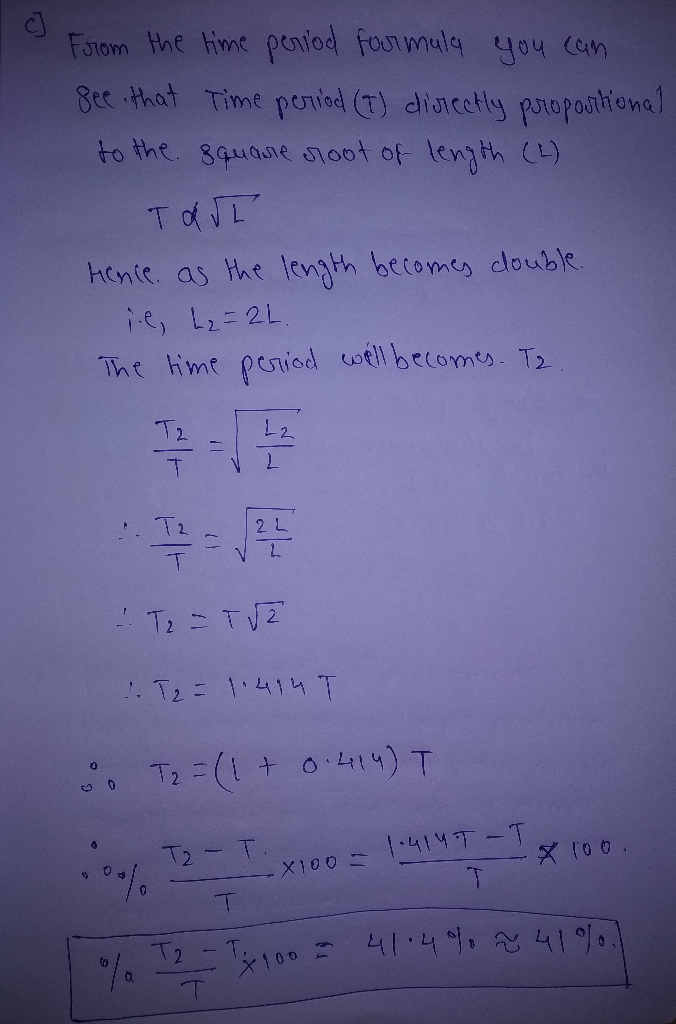 c]
From the time period formula you can
see that Time period (T) directly proportional
to the square root of length (L)
T α √L
Hence. as the length becomes double.
i.e, L₂ = 2L.
The time period well becomes. T₂.
T₂/T = √(L₂/L)
∴ T₂/T = √(2L/L)
∴ T₂ = T√2
∴ T₂ = 1.414 T
∴ T₂ = (1 + 0.414) T
∴ % (T₂ - T.)/T ×100 = (1.414T - T)/T × 100.
% (T₂ - T)/T ×100 = 41.4% ≈ 41%.